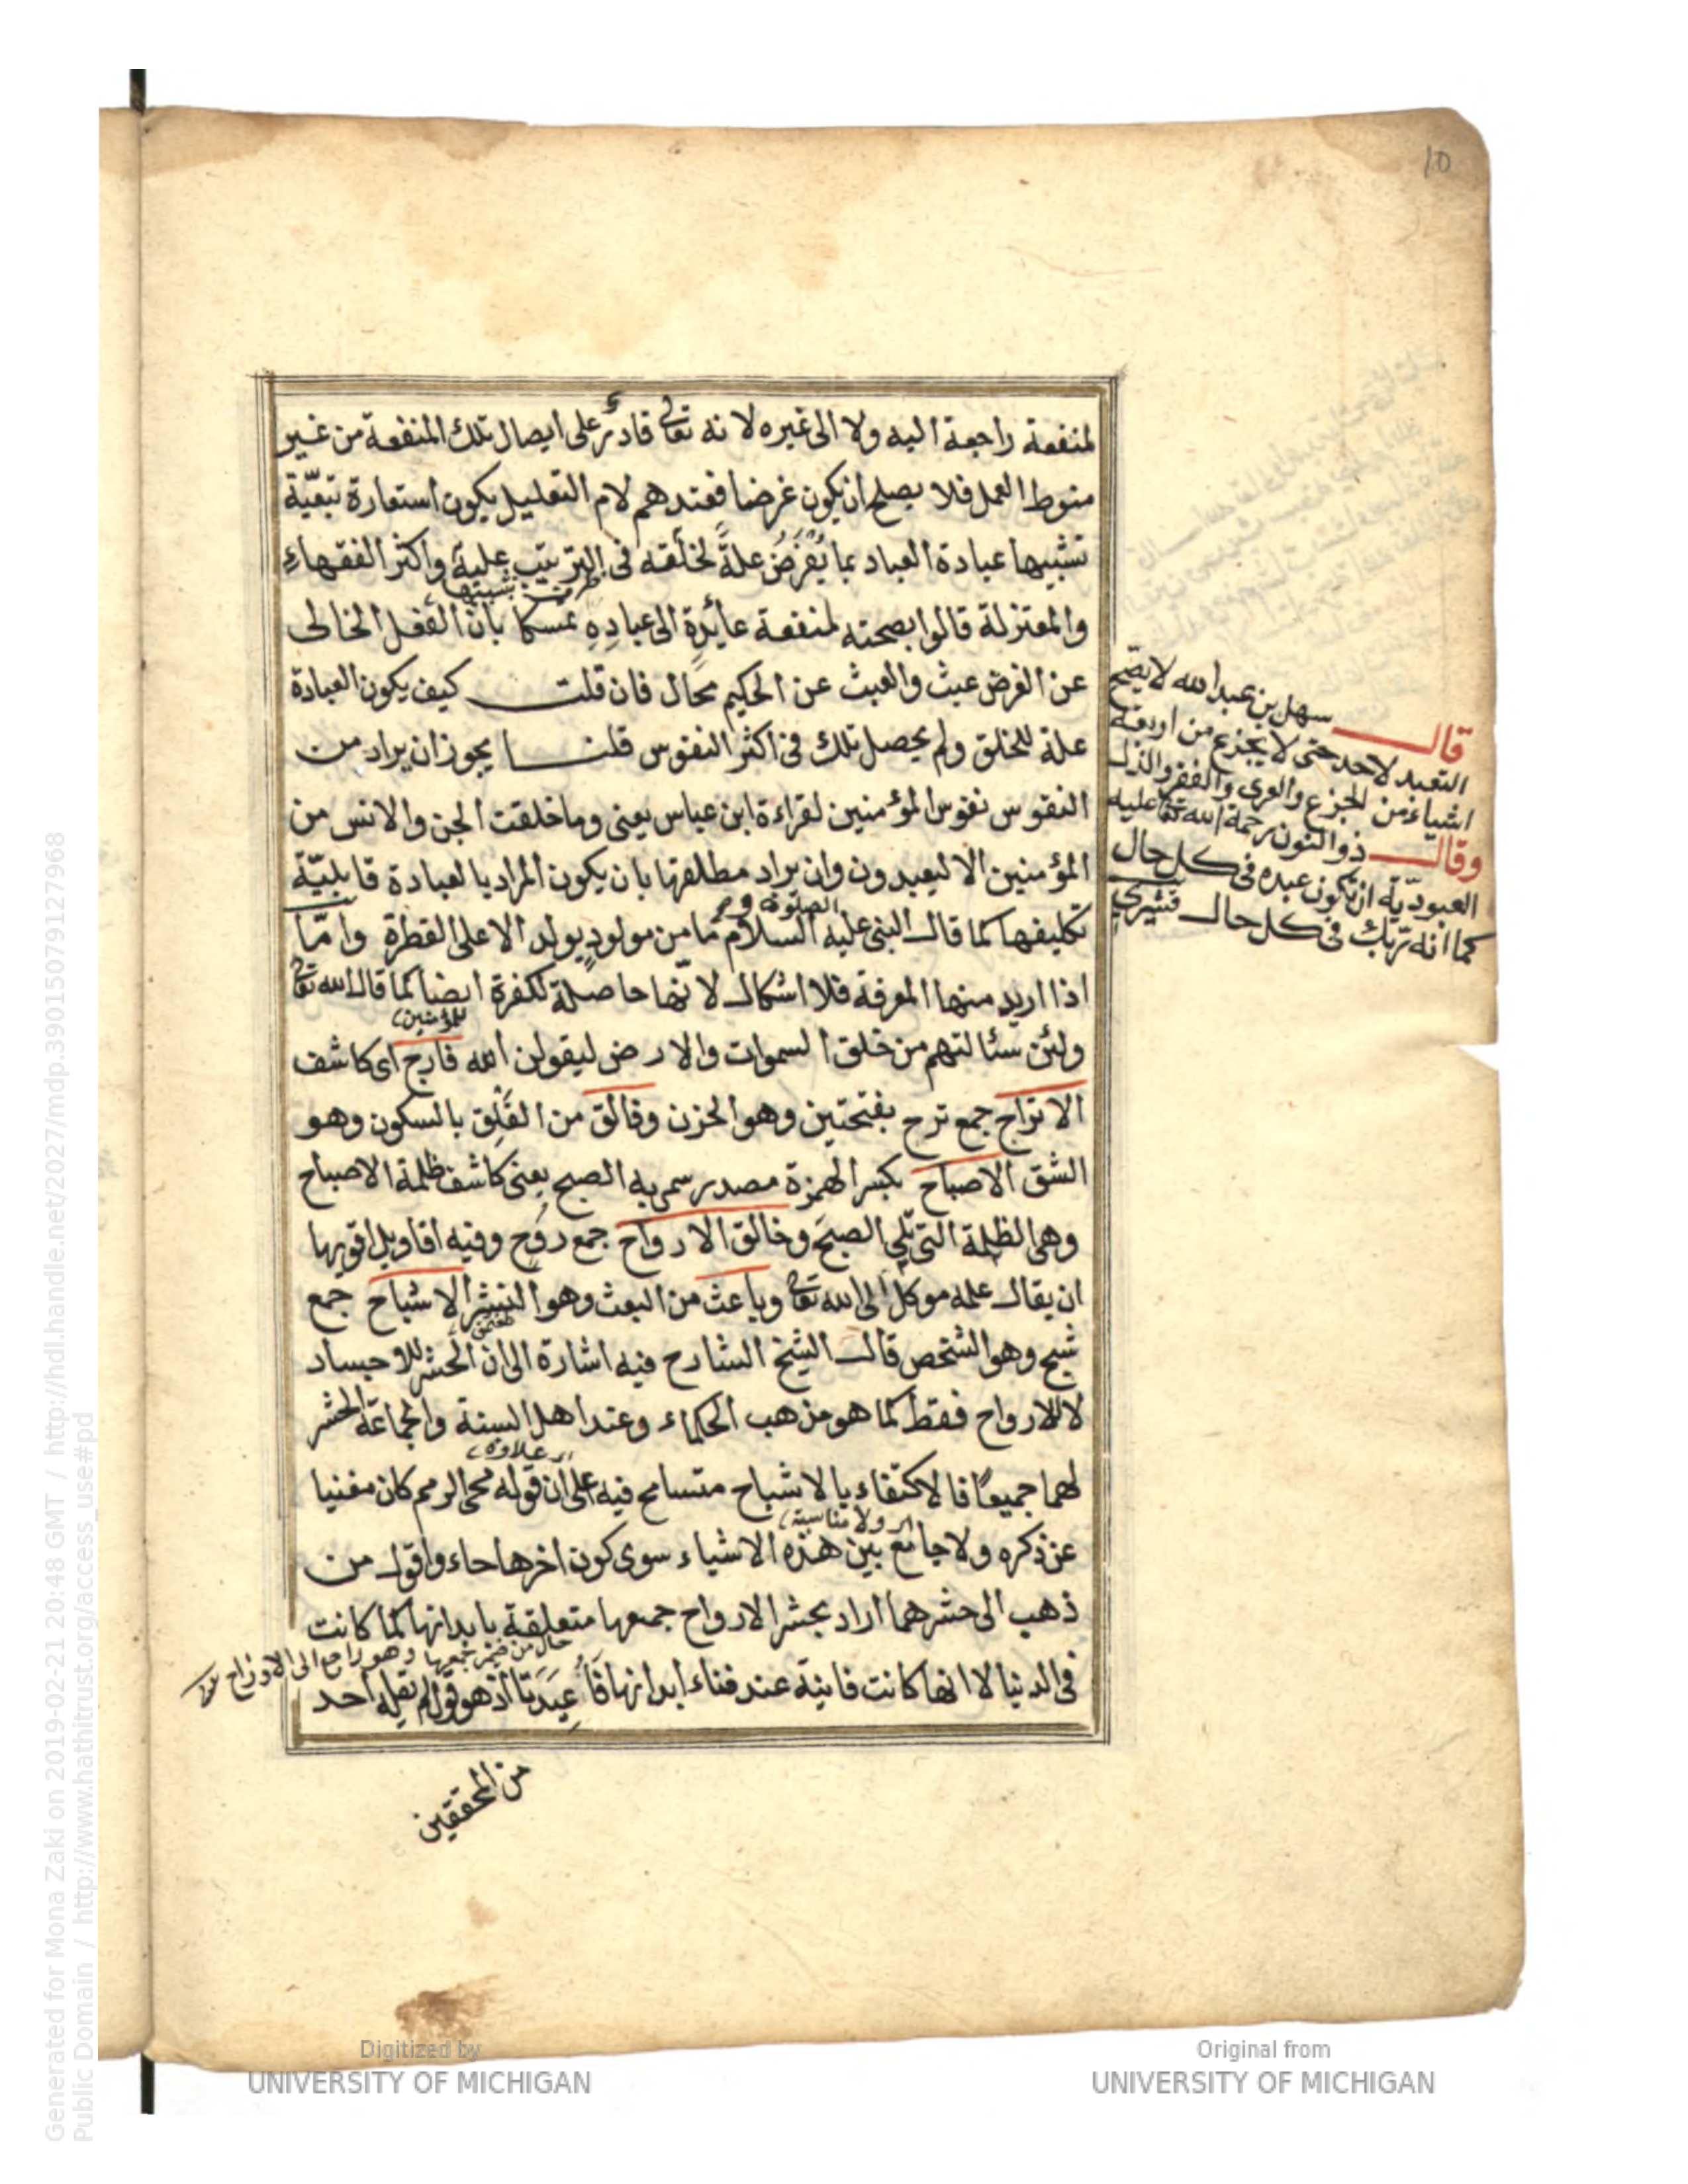 10
لمنفعة راجعة اليه ولا الى غيره لا نه تعالى قادر على ايصال تلك المنفعة من غير
منوط العمل فلا يصلح ان يكون غرضا فعندهم لام التعليل يكون استعارة تبعيّة
تشبيها عبادة العباد بما يُفْرَضُ علةً لخلقه فى الترتيب عليه واكثر الفقهاء
والمعتزلة قالوا بصحته لمنفعة عائدة الى عباده تمسكا بان الفعل الخالى
عن الغرض عبث والعبث عن الحكيم محال فان قلت كيف يكون العبادة
علة للخلق ولم يحصل تلك فى اكثر النفوس قلنا يجوز ان يراد من
النفوس نفوس المؤمنين لقراءة ابن عباس يعنى وما خلقت الجن والانس من
المؤمنين الا ليعبدون وان يراد مطلقها بان يكون المراد بالعبادة قابليّة
تكليفها كما قال النبى عليه الصلوة و السلام ما من مولود يولد الا على الفطرة وامّا
اذا اريد منها المعرفة فلا اشكال لا نّها حاصلة لكفرة ايضا كما قال الله تعالى
ولئن سئالتهم من خلق السموات والارض ليقولن الله فارج اى كاشف
للمؤمنين
الاتراح جمع ترح بفتحتين وهو الحزن وفالق من الفَلْق بالسكون وهو
الشق الاصباح بكسر الهمزة مصدر سمى به الصبح يعنى كاشف ظلمة الاصباح
وهى الظلمة التى تلى الصبح وخالق الارواح جمع روح وفيه اقاويل اقويها
ان يقال علمه موكل الى الله تعالى وباعث من البعث وهو النشر الاشباح جمع
شبح وهو الشخص قال الشيخ الشارح فيه اشارة الى ان الحشر للاجساد
لا للارواح فقط كما هو مذهب الحكماء وعند اهل السنة والجماعة الحشر
لهما جميعًا فالاكتفاء بالاشباح متسامح فيه على ان قوله محى الرمم كان مغنيا
علاوه
عن ذكره ولا جامع بين هذه الاشياء سوى كون اخرها حاء واقول من
ولا مناسبة
ذهب الى حشرهما اراد بحشر الارواح جمعها متعلقة بابدانها كما كانت
فى الدنيا لا انها كانت فانية عند فناء ابدانها فاُعِيدَتا اذ هو قول لم يقله احد
حال من ضمير جمعها وهو راجع الى الارواح
من المحققين
قال سهل بن عبد الله لا يصّح
التعبد لاحد حتى لا يجزع من اربعة
اشياء من الجزع والعرى والفقر والذل
وقال ذو النون رحمة الله تعالى عليه
العبوديّة ان تكون عبده فى كل حال
كما انه ربك فى كل حال قشيرى
Digitized by
UNIVERSITY OF MICHIGAN
Original from
UNIVERSITY OF MICHIGAN
Generated for Mona Zaki on 2019-02-21 20:48 GMT / http://hdl.handle.net/2027/mdp.39015079127968
Public Domain / http://www.hathitrust.org/access_use#pd